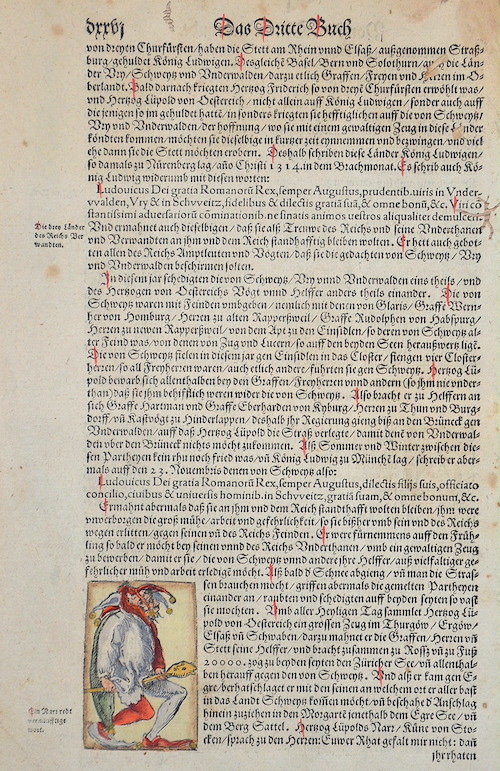 dxxvj Das Dritte Buch
von dreyen Churfürsten/ haben die Stett am Rhein vnnd Elsaß/ außgenommen Straß-
burg/ gehuldet König Ludwigen. Desgleichē Basel/ Bern vnd Solothurn/ auch die Län-
der Vry/ Schweytz vnd Vnderwalden/ darzu etlich Graffen/ Freyen vnd Herren im O-
berlandt. Bald darnach kriegten Hertzog Friderich so von dreyē Churfürsten erwöhlt was/
vnd Hertzog Lüpold von Oestereich/ nicht allein auff König Ludwigen/ sonder auch auff
die jenigen so jm gehuldet hattē/ in sonders kriegten sie hefftiglichen auff die von Schweytz/
Vry vnd Vnderwalden/ der hoffnung/ wo sie mit einem gewaltigen Zeug in diese Länder
kondten kommen/ möchten sie dieselbige in kurtzer zeit eynnemmen vnd bezwingen/ vnd viel
ehe dann sie die Stett möchten erobern. Deshalb schriben diese Länder König Ludwigen/
so damals zu Nürenberg lag/ año Christi 1314. in dem Brachmonat. Es schrib auch Kö-
nig Ludwig widerumb mit diesen worten:
Ludouicus Dei gratia Romanorū Rex, semper Augustus, prudentib. uiris in Vnder-
vvalden, Vry & in Schvveitz, fidelibus & dilectis gratiā suā, & omne bonū, &c. Viri cō
stantissimi aduersariorū cōminationib. ne finatis animos uestros aliqualiter demulceri.
Vnd ermahnet auch dieselbigen/ daß sie als Treuwe des Reichs vnd seine Vnderthanen
vnd Verwandten an jhm vnd dem Reich standhafftig bleiben wolten. Er hett auch gebot-
ten allen des Reichs Amptleuten vnd Vögten/ daß sie die gedachten von Schweytz/ Vry
vnd Vnderwalden beschirmen solten.
Die drey Länder
des Reichs Ver
wandten.
In diesem jar schedigten die von Schweytz/ Vry vnnd Vnderwalden eins theils/ vnd
des Hertzogen von Oesterreichs Vögt vnnd Helffer anders theils einander. Die von
Schweytz waren mit Feinden vmbgeben/ nemlich mit denen von Glaris/ Graffe Wern-
her von Homburg/ Herren zu alten Rapperßweil/ Graffe Rudolphen von Habspurg/
Herren zu newen Rapperßweil/ von dem Apt zu den Einsidlen/ so deren von Schweytz al-
ter Feind was/ von denen von Zug vnd Lucern/ so auff den beyden Seen herauß wertz ligē.
Die von Schweytz fielen in diesem jar gen Einsidlen in das Closter/ fiengen vier Closter-
herren/ so all Freyherren waren/ auch etlich andere/ fuhrten sie gen Schweytz. Hertzog Lü-
pold bewarb sich allenthalben bey den Graffen/ Freyherren vnnd andern (so jhm nie vnder-
than) daß sie jhm behilfflich weren wider die von Schweytz. Also bracht er zu Helffern an
sich Graffe Hartman vnd Graffe Eberharden von Kyburg/ Herren zu Thun vnd Burg-
dorff/ vn̄ Kastvögt zu Hinderlappen/ deshalb jhr Regierung gieng biß an den Brüneck gen
Vnderwalden/ auff daß Hertzog Lüpold die Straß verlegte/ damit denē von Vnderwal-
den vber den Brüneck nichts möcht zukommen. Alß Sommer vnd Winter zwischen die-
sen Partheyen kein rhu noch fried was/ vn̄ König Ludwig zu Münchē lag/ schreib er aber-
mals auff den 23. Nouembris denen von Schweytz also:
Ludouicus Dei gratia Romanorū Rex, semper Augustus, dilectis filijs suis, officiato
concilio, ciuibus & uniuersis hominib. in Schvveitz, gratiā suam, & omne bonum, &c.
Ermahnt abermals daß sie an jhm vnd dem Reich standthafft wolten bleiben/ jhm were
vnuerborgen die groß mühe/ arbeit vnd gefehrlichkeit/ so sie bißher vmb sein vnd des Reichs
wegen erlitten/ gegen seinen vn̄ des Reichs Feinden. Er were fürnemmens auff den Früh-
ling so bald er möcht bey seinen vnnd des Reichs Vnderthanen/ vmb ein gewaltigen Zeug
zu bewerben/ damit er sie/ die von Schweytz vnnd andere jhr Helffer/ auß vielfaltiger ge-
fehrlicher müh vnd arbeit erledigē möcht. Alß bald d̓ Schnee abgieng/ vn̄ man die Stras-
sen brauchen mocht/ griffen abermals die gemelten Partheyen
einander an/ raubten vnd schedigten auff beyden seyten so vast
sie mochten. Vmb aller Heyligen Tag sammlet Hertzog Lü-
pold von Oestereich ein grossen Zeug im Thurgöw/ Ergöw/
Elsaß vn̄ Schwaben/ darzu mahnet er die Graffen/ Herren vn̄
Stett seine Helffer/ vnd bracht zusammen zu Rossz vn̄ zu Fuß
20000. zog zu beyden seyten den Züricher See/ vn̄ allenthal-
ben herauff gegen den von Schweytz. Vnd alß er kam gen E-
gre/ berhatschlaget er mit den seinen an welchem ort er aller bast
in das Land Schweytz kom̄en möcht/ vn̄ beschahe d̓ Anschlag
hinein zuziehen in den Morgartē jenethalb dem Egre See/ vn̄
dem Berg Sattel. Hertzog Lüpolds Narr/ Kůne von Sto-
cken/ sprach zu den Herren: Euwer Rhat gefalt mir nicht: dañ
jhr rhaten
Ein Narr redt
vernünfftige
wort.